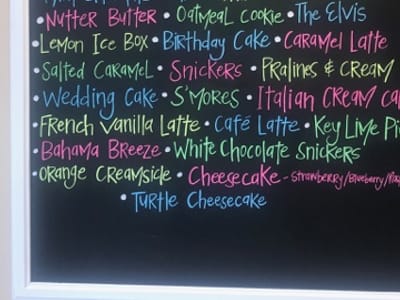 • Nutter Butter • Oatmeal Cookie • The Elvis
• Lemon Ice Box • Birthday Cake • Caramel Latte
• Salted Caramel • Snickers • Pralines & Cream
• Wedding Cake • S'mores • Italian Cream
• French Vanilla Latte • Café Latte • Key Lime
• Bahama Breeze • White Chocolate Snickers
• Orange Creamside • Cheesecake - Strawberry/Blueberry/
• Turtle Cheesecake